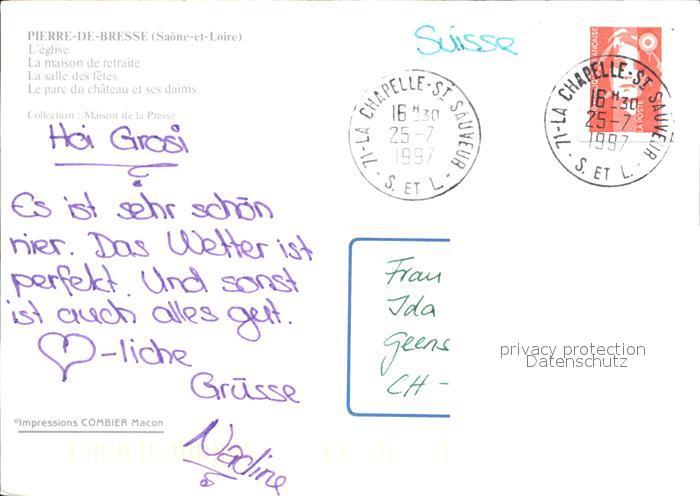 PIERRE-DE-BRESSE (Saône-et-Loire)
L'église
La maison de retraite
La salle des fêtes
Le parc du château et ses daims
Collection : Maison de la Presse
Suisse
71-LA CHAPELLE-ST SAUVEUR
16 H 30
25-7
1997
- S. ET L. -
71-LA CHAPELLE-ST SAUVEUR
16 H 30
25-7
1997
- S. ET L. -
LA POSTE
Hoi Grosi
Es ist sehr schön
hier. Das Wetter ist
perfekt. Und sonst
ist auch alles gut.
♡-liche
Grüsse
Nadine
Frau
Ida
CH -
privacy protection
Datenschutz
©Impressions COMBIER Macon